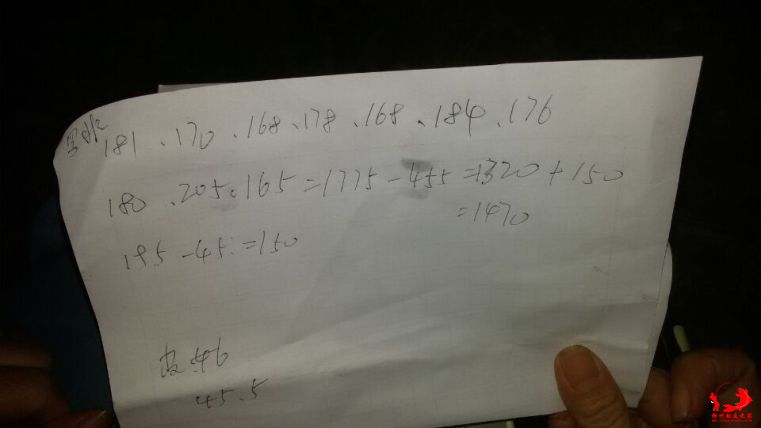 181、170、168、178、168、184、176
180、205、165=1775-455=1320+150
=1470
195-45=150
皮
45.5